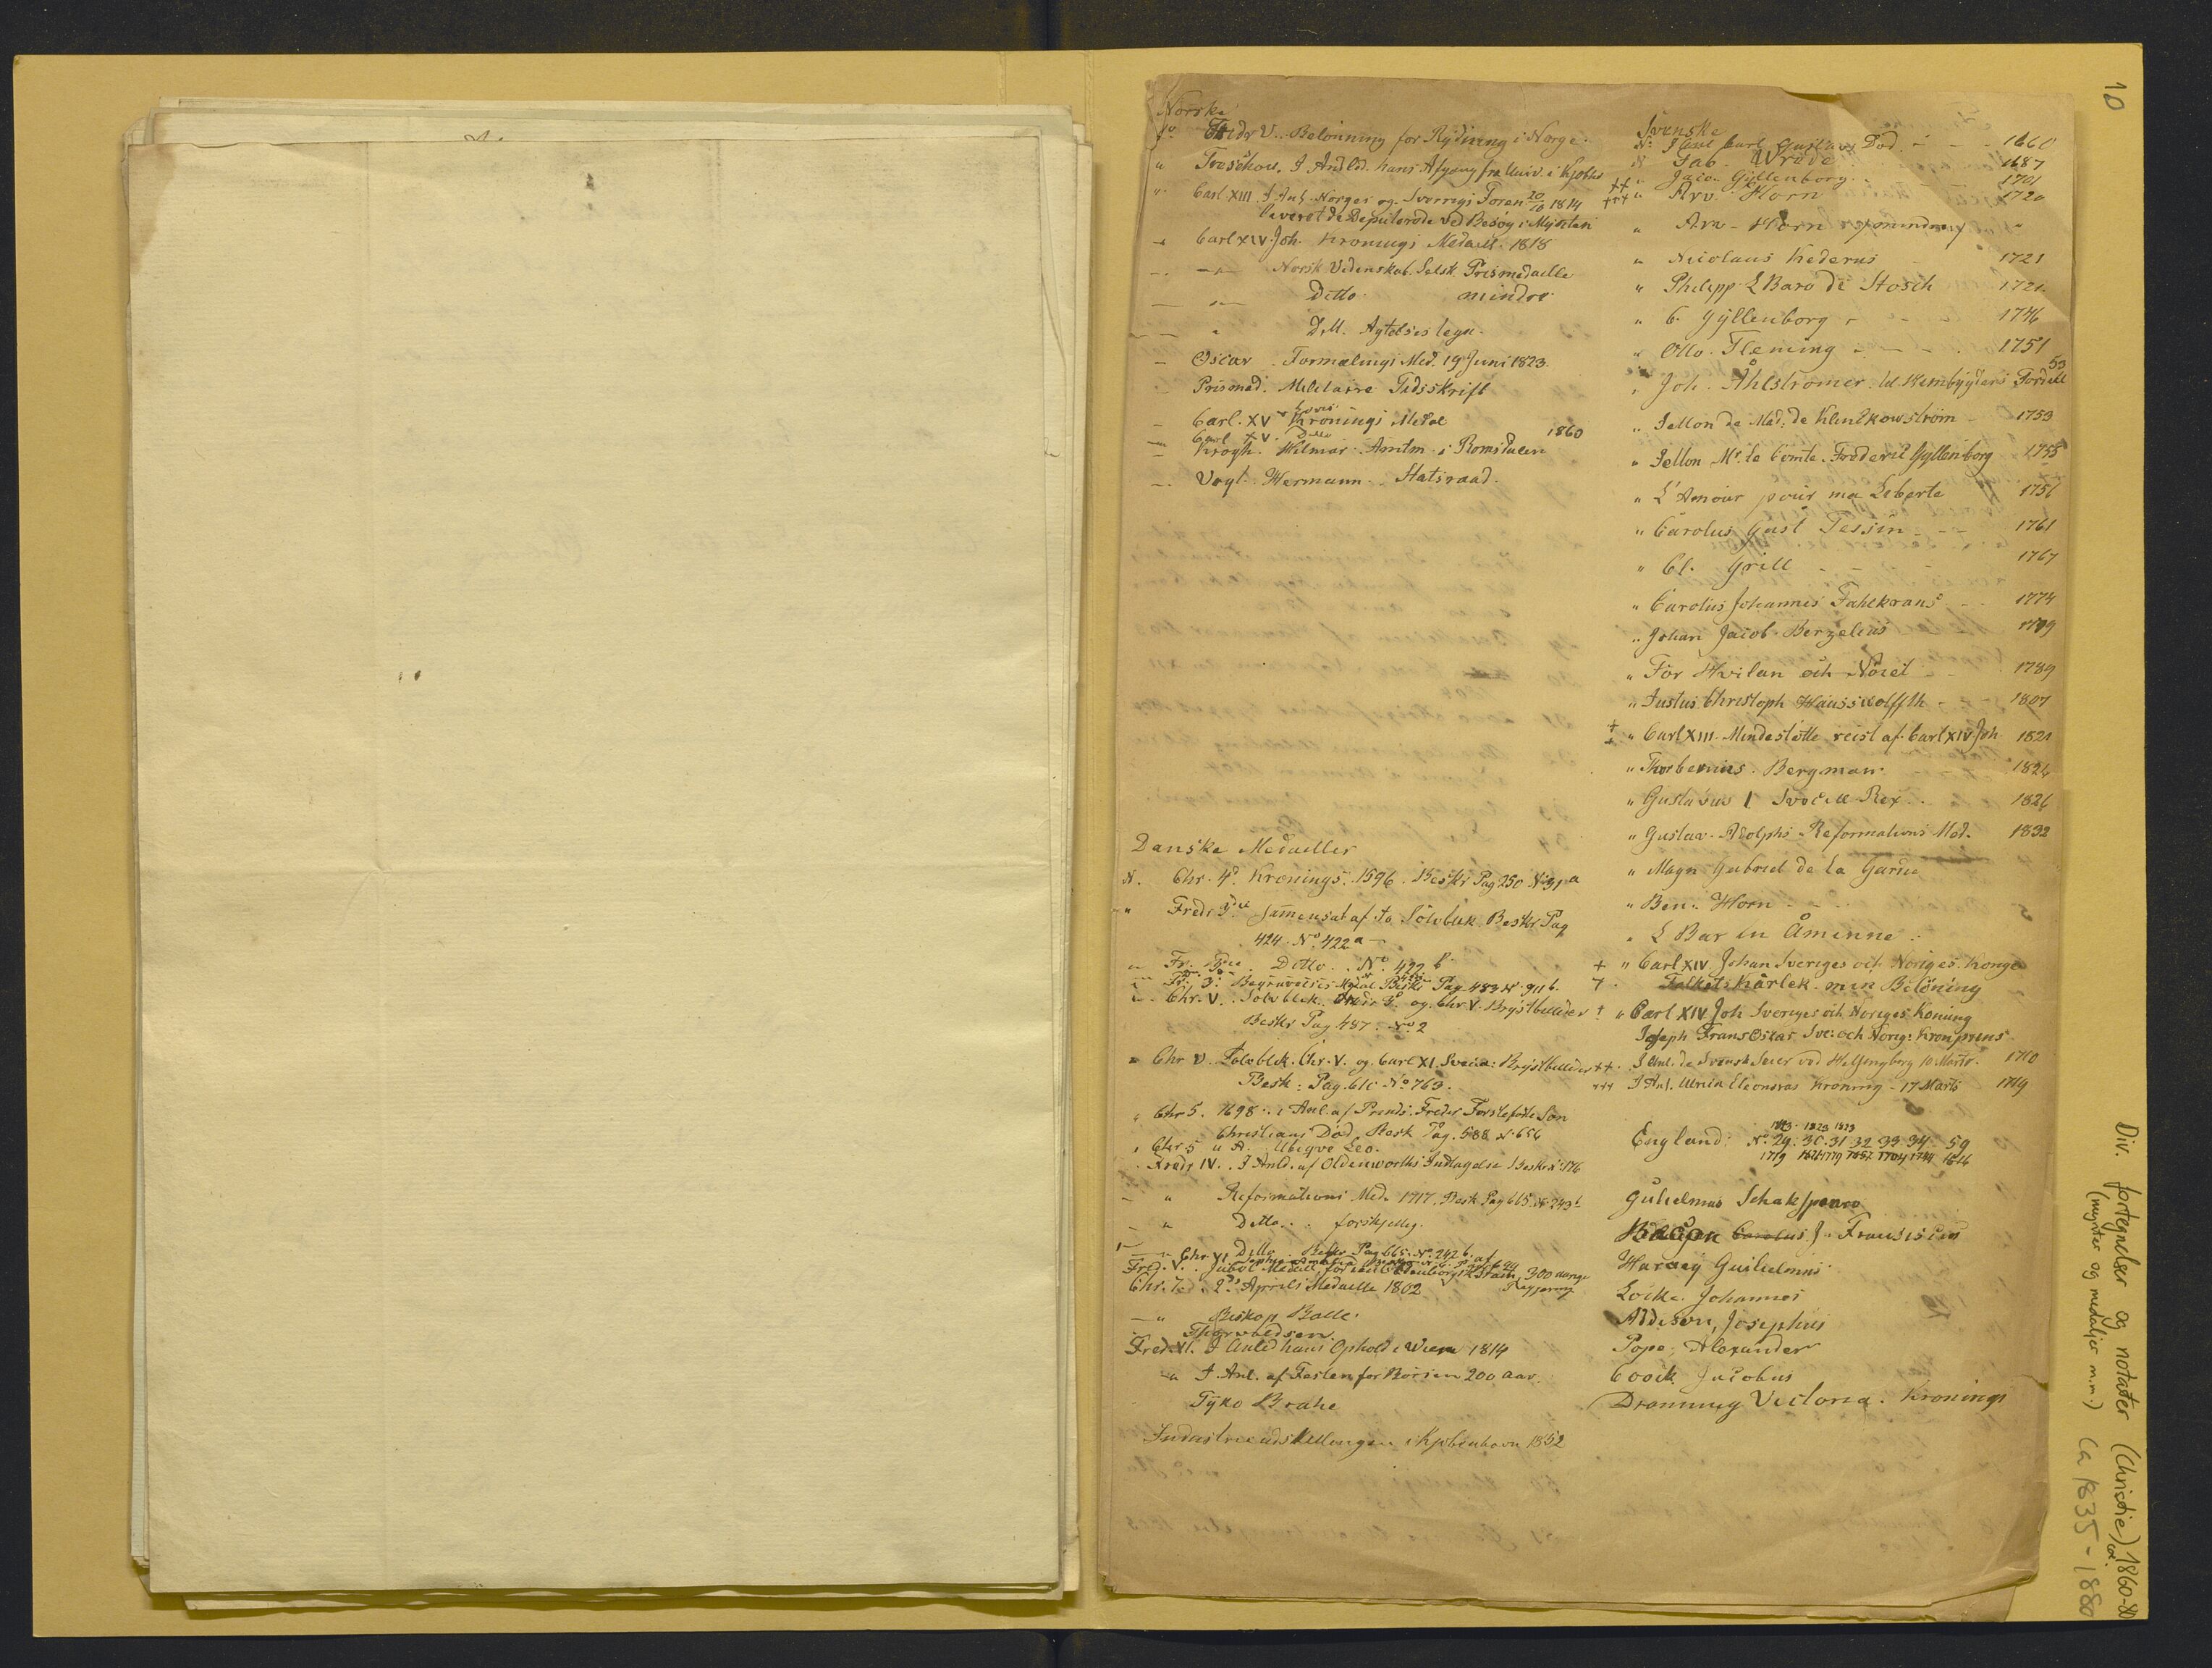 Norske
No Fredr V. Belönning for Rydning i Norge.
" Treschow. I Anld. hans Afgang fra Univ. i Kjøbh
" Carl XIII. I Anl. Norges og Sverrigs Foren 20/10 1814
leveret de Deputerede ved Besög i Mynten
" Carl XIV. Joh. Kronings Medaill. 1818
" — Norsk Vidensk. Selsk. Prismedaille
— " — Ditto mindre
— " D.M. Agtelses tegn.
— Oscar Formælings Med. 19 Juni 1823.
Prismed. Militaire Tidsskrift
— Carl. XV Kronings Medal
— Carl XV. Ditto 1860
— Krogh. Hilmar. Amtm. i Romsdalen
— Vogt. Hermann. Statsraad.
Danske Medailler
N. Chr. 4de Kronings. 1596. Beskr Pag 250 No 31 a
" Fredr 3die sammensat af to Sölvblik. Beskr Pag
424. No. 422 a —
" Fr. 3die Ditto. No. 422 b
" Fr. 3. Begravelses Medal Beskr Pag. 483 N. 911 b.
" Chr. V. Sölvblik. Fredr 3. og Chr V. Brystbilleder
Beskr Pag 487. No 2
" Chr V. Sölvblik. Chr. V. og Carl XI. Svecia: Brystbilleder
Besk: Pag. 610 No 769.
" Chr 5. 1698. i Anl. af Prinds Fredr Förstefödte Sön
Christians Död Besk Pag. 588 N. 656
" Chr 5 u A. Ubique Leo.
Fredr IV. I Anld. af Oldenworths Indtagelse Beskr N. 176
— " Reformations Med. 1717. Besk. Pag 665. N. 243 b
— " Ditto. . . forskjellig.
Ditto Beskr Pag 665. No. 242 b.
Fred. V. Jubel Medaill. for den Oldenborgske Stam. 300 aarige
Regjering
Chr. 7de. 2den Aprils Medaille 1802
— " Biskop Balle.
Thorvaldsen.
Fred. VI. I Anled hans Ophold i Wien 1814
" I Anl. af Festen for Börsen 200 aar.
Tyko Brahe
Industrieudstillingen i Kjøbenhavn 1852
Svenske
N. I Anl Carl Gustavs Död — — 1660
N Fab. Wrede 1687
++ " Jacob Gyllenborg. 1701
+++ " Arv. Horn 1720
" Arv. Horn "
" Nicolaus Kederus 1721
" Philipp L Baro de Stosch 1721
" C. Gyllenborg — — 1746
" Otto. Fleming — — 1751
" Joh. Åhlströmer. 53
" Jetton de Mad: de Klinckowström — 1753
" Jetton Mr. le Comte. Frederic Gyllenborg 1755
" L'Amour pour ma Liberte 1756
" Carolus Gust Tessin — — 1761
" Cl. Grill — — 1767
" Carolus Johannes Fahlkrans — 1774
" Johan Jacob. Berzelius 1779
" För Hvilan och Nöiet — 1789
" Justus Christoph Hausswolffth — 1807
+ " Carl XIII. Mindestötte reist af Carl XIV Joh 1821
" Thorbernus. Bergman 1826
" Gustavus I Sveciæ Rex. 1826
" Gustav. Adolphs Reformations Med. 1832
" Magn Gabriel de la Gardie
" Ben: Horn — —
" L Bar in Åminne :
+ " Carl XIV. Johan Sveriges och Noriges. Konge
+ Folkets Kärlek. min Belöning
+ " Carl XIV Joh Sveriges och Noriges Konung
Joseph Frans Oskar Sve: och Norig: Kronprins
++ I Anl. de Svensk Seier ved Helsingborg 10 Marts. 1710
+++ I Anl. Ulrica Eleonoras Kroning — 17 Marts 1719
1823 1823
England: No. 29. 30. 31. 32. 33. 34. 59
1719 1774
Gulielmus Schakspeare
Bacon Carolus J. Fransiscus
Harvey Guilielmus
Locke. Johannes
Addison, Josephus
Pope, Alexander
Coock Jacobus
Dronning Victoria. Kronings
10
Div. fortegnelser og notater (Christie) ca. 1860-80
(mynter og medaljer m.m.) ca 1835-1880